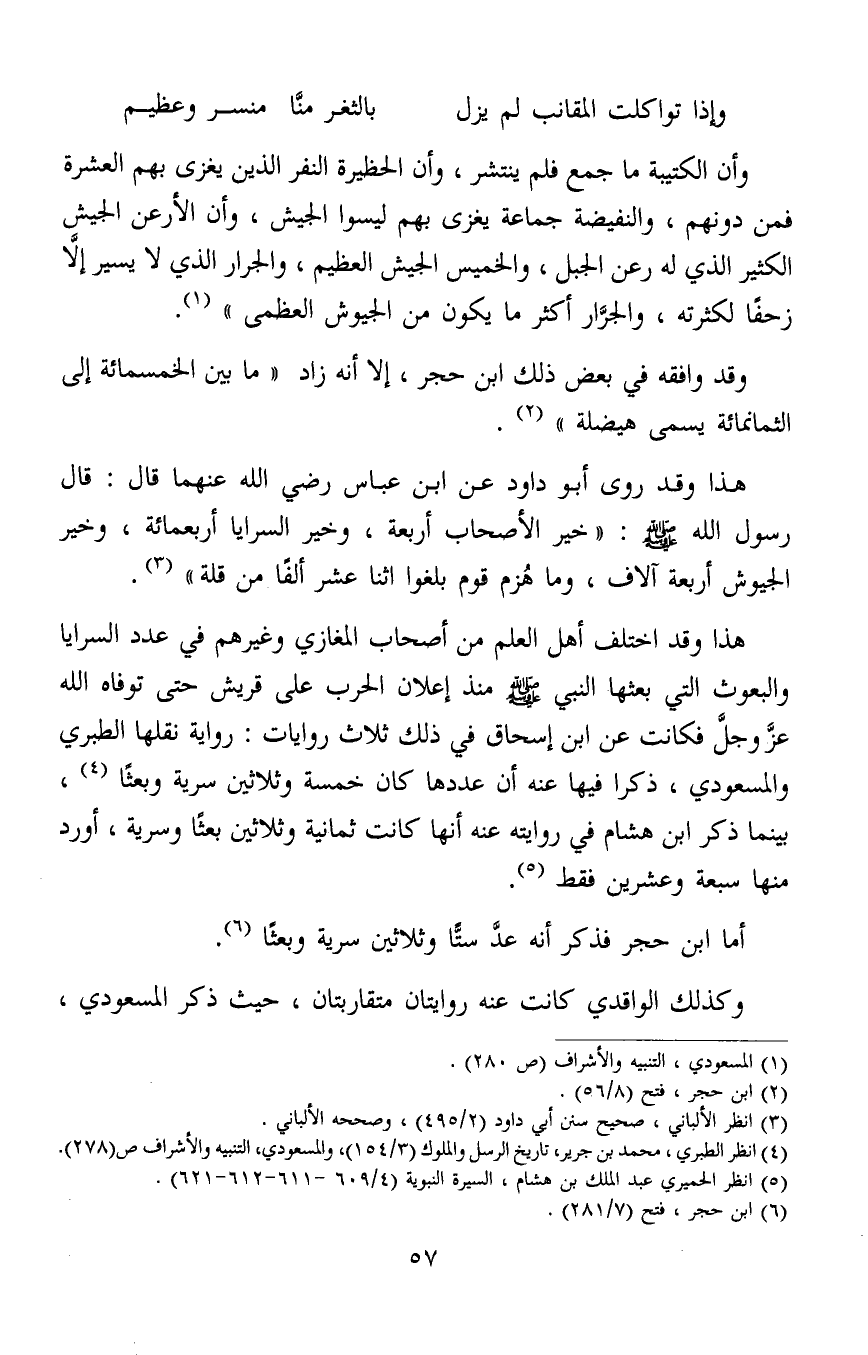 وإذا تواكلت المقانب لم يزل بالثغر منَّا منسر وعظيم
وأن الكتيبة ما جمع فلم ينتشر ، وأن الحظيرة النفر الذين يغزى بهم العشرة
فمن دونهم ، والنفيضة جماعة يغزى بهم ليسوا الجيش ، وأن الأرعن الجيش
الكثير الذي له رعن الجبل ، والخميس الجيش العظيم ، والجرار الذي لا يسير إلَّا
زحفًا لكثرته ، والجرَّار أكثر ما يكون من الجيوش العظمى » (١).
وقد وافقه في بعض ذلك ابن حجر ، إلا أنه زاد « ما بين الخمسمائة إلى
الثمانمائة يسمى هيضلة » (٢) .
هذا وقد روى أبو داود عن ابن عباس رضي الله عنهما قال : قال
رسول الله ﷺ : « خير الأصحاب أربعة ، وخير السرايا أربعمائة ، وخير
الجيوش أربعة آلاف ، وما هُزم قوم بلغوا اثنا عشر ألفًا من قلة » (٣) .
هذا وقد اختلف أهل العلم من أصحاب المغازي وغيرهم في عدد السرايا
والبعوث التي بعثها النبي ﷺ منذ إعلان الحرب على قريش حتى توفاه الله
عزَّ وجلَّ فكانت عن ابن إسحاق في ذلك ثلاث روايات : رواية نقلها الطبري
والمسعودي ، ذكرا فيها عنه أن عددها كان خمسة وثلاثين سرية وبعثًا (٤) ،
بينما ذكر ابن هشام في روايته عنه أنها كانت ثمانية وثلاثين بعثًا وسرية ، أورد
منها سبعة وعشرين فقط (٥).
أما ابن حجر فذكر أنه عدَّ ستًّا وثلاثين سرية وبعثًا (٦).
وكذلك الواقدي كانت عنه روايتان متقاربتان ، حيث ذكر المسعودي ،
(١) المسعودي ، التنبيه والأشراف (ص ٢٨٠) .
(٢) ابن حجر ، فتح (٥٦/٨) .
(٣) انظر الألباني ، صحيح سنن أبي داود (٤٩٥/٢) ، وصححه الألباني .
(٤) انظر الطبري ، محمد بن جرير، تاريخ الرسل والملوك (١٥٤/٣)، والمسعودي، التنبيه والأشراف ص(٢٧٨).
(٥) انظر الحميري عبد الملك بن هشام ، السيرة النبوية (٦٠٩/٤ -٦١١-٦١٢-٦٢١) .
(٦) ابن حجر ، فتح (٢٨١/٧) .
٥٧